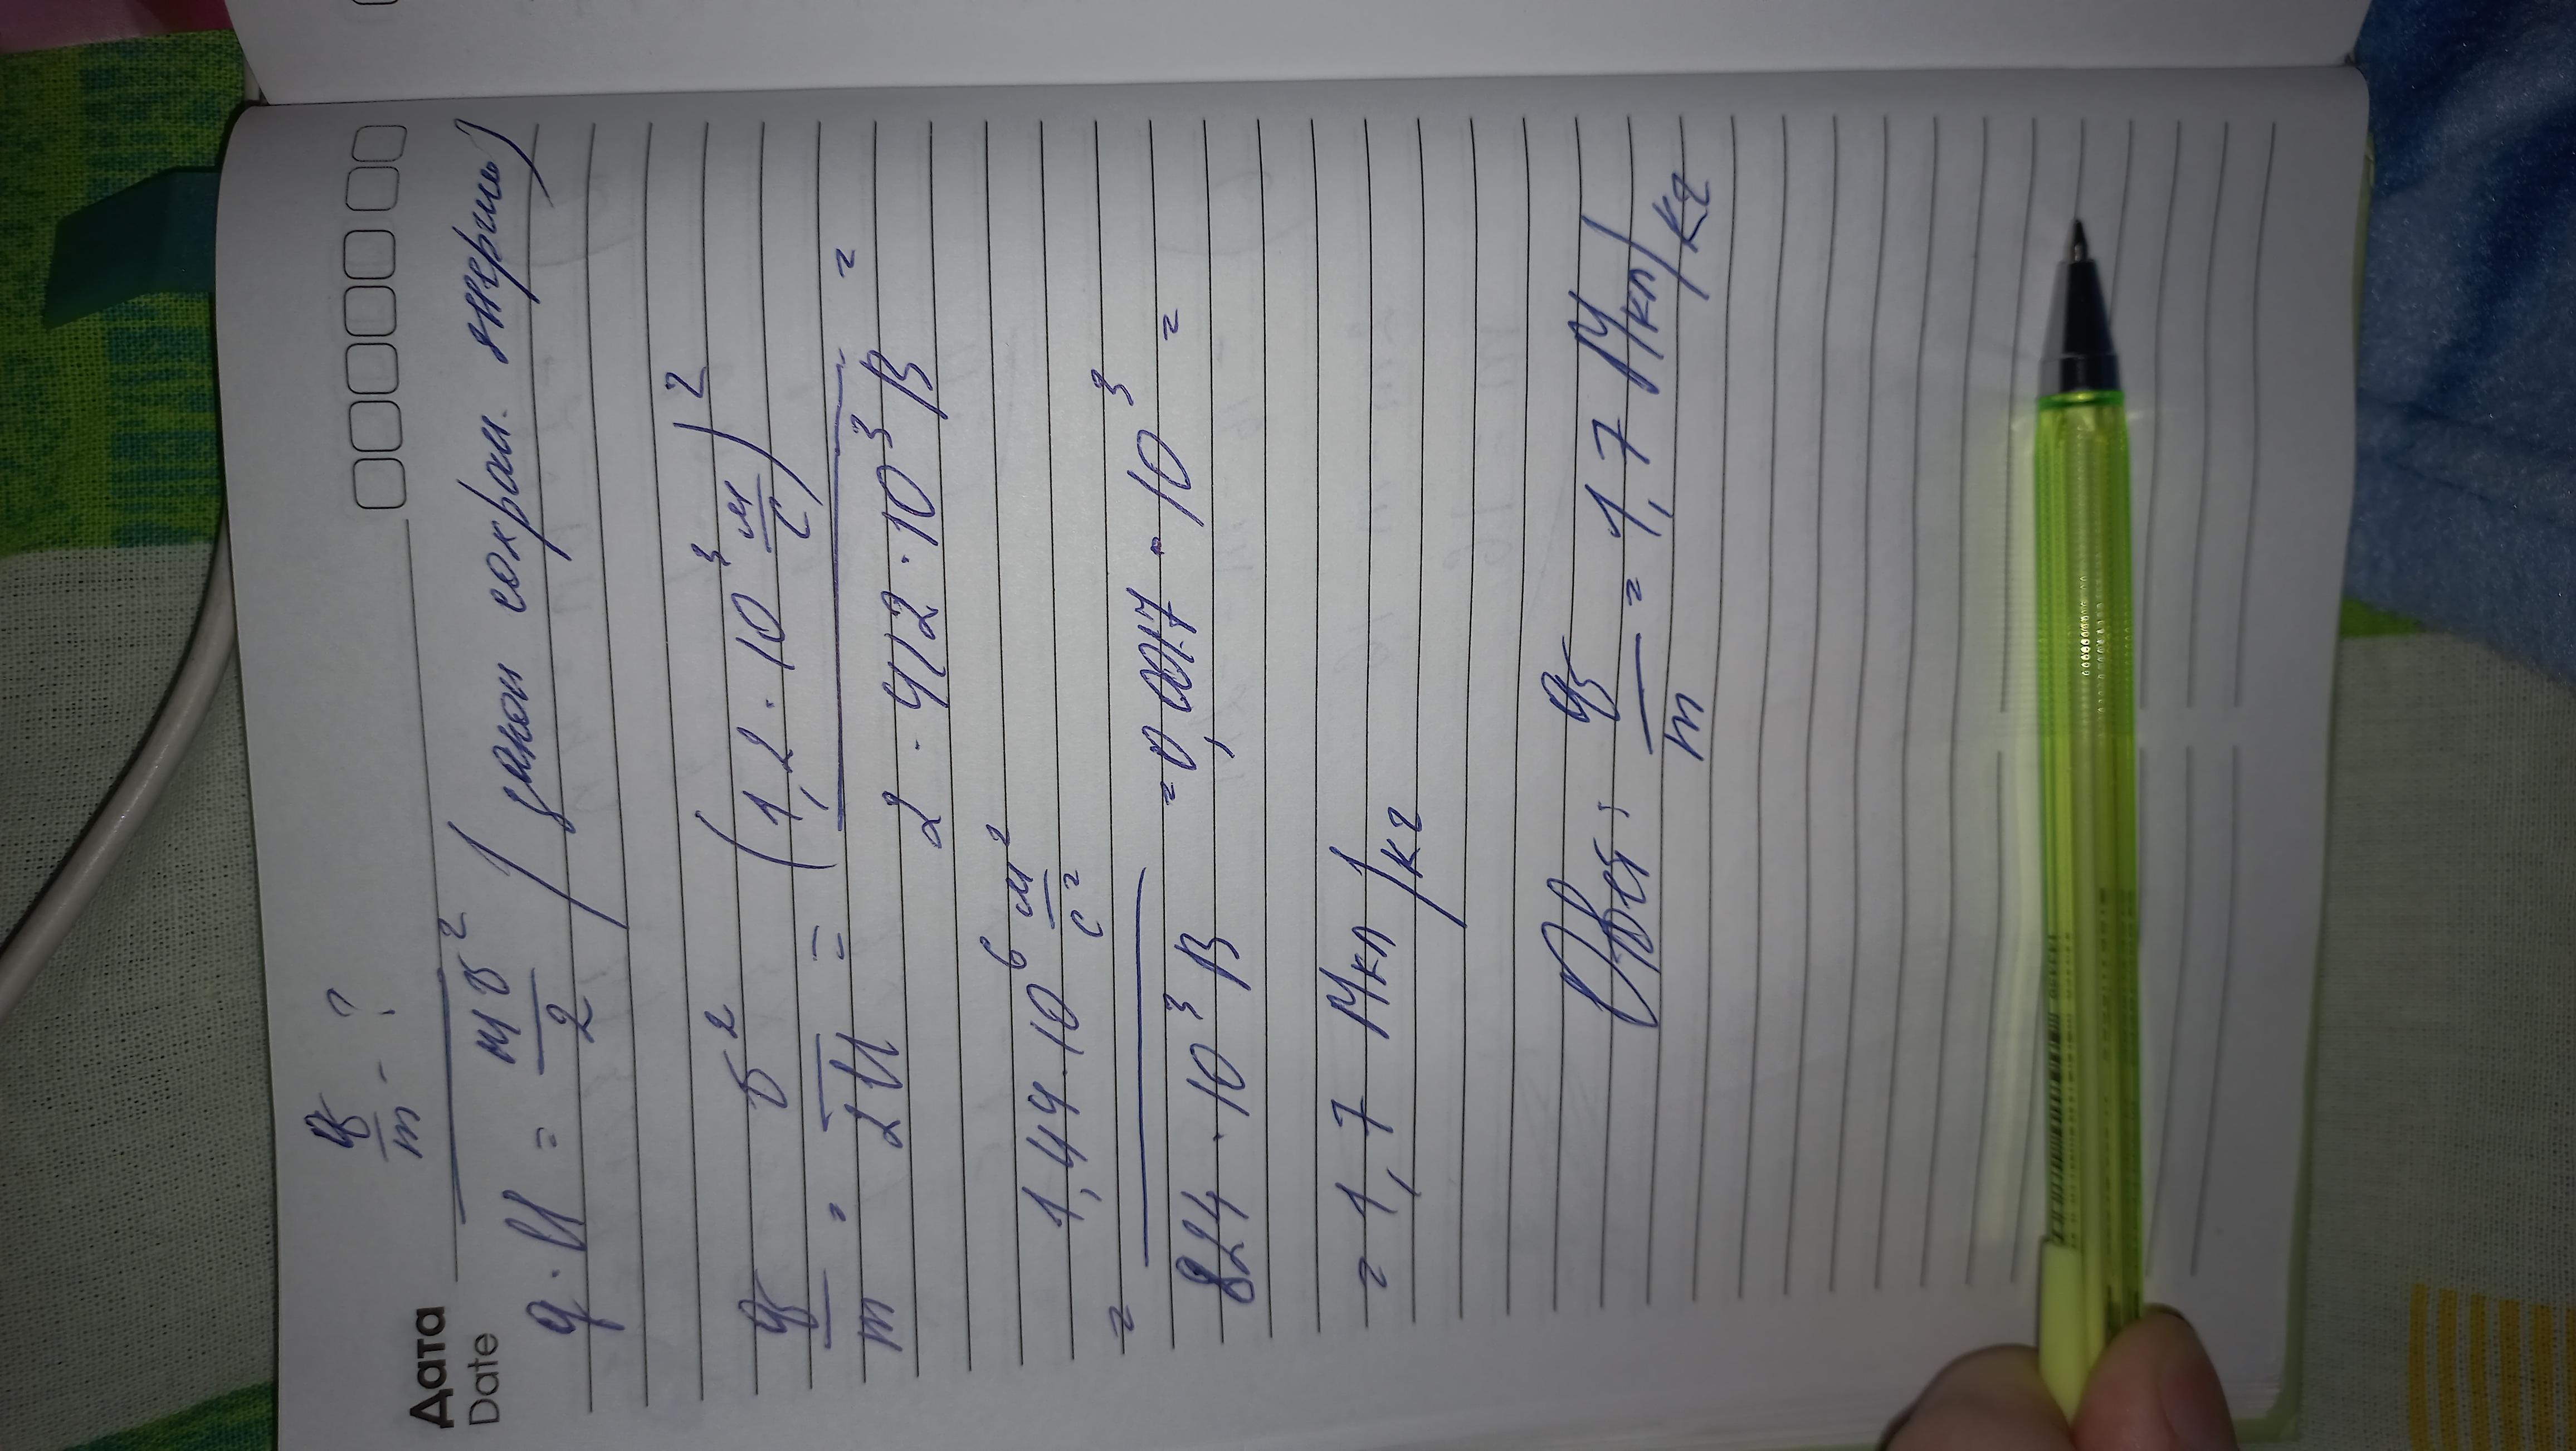 q/m - ?
Дата
Date
q · U = mv²/2 (закон сохран. энергии)
q/m = v²/2U = (1,2 · 10³ м/с)²/2 · 412 · 10³ В =
= 1,44 · 10⁶ м²/с²/824 · 10³ В = 0,0017 · 10³ =
= 1,7 Мкл/кг
Ответ: q/m = 1,7 Мкл/кг